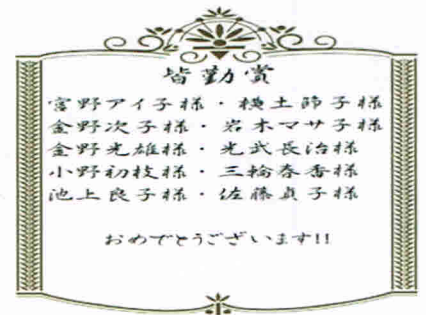 皆勤賞
宮野アイ子様・横土節子様
金野次子様・岩木マサ子様
金野光雄様・光武長治様
小野初枝様・三輪春香様
池上良子様・佐藤貞子様
おめでとうございます!!